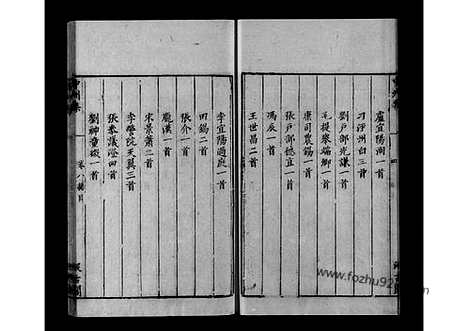 盧宜陽洵一首
刁涇州白三首
劉戶部光謙一首
毛提舉端卿一首
康司農錫一首
張戶部德直一首
馮辰一首
王世昌二首
李宜陽過庭一首
田錫二首
張介一首
龐漢一首
宋景蕭二首
李警院天翼三首
張參議澄四首
劉神童微一首
卷八總目
汲古閣
www.fozhu92